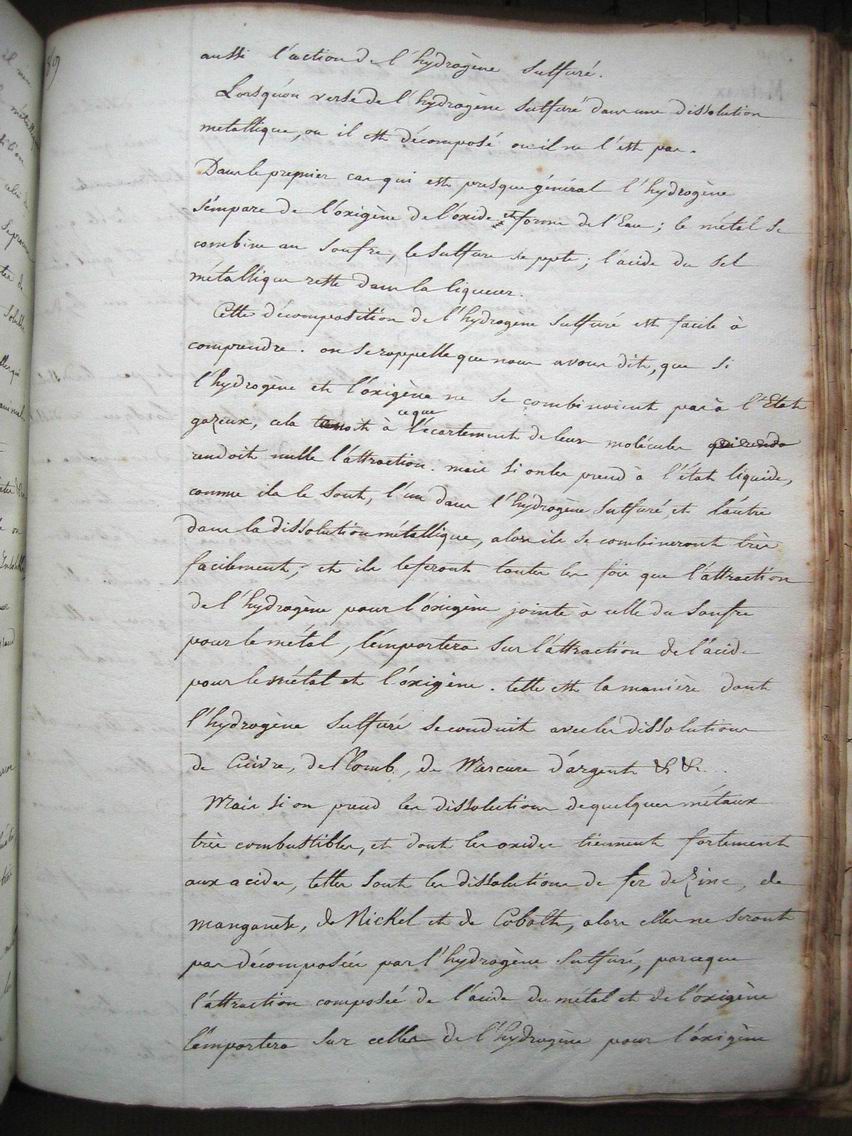 89
aussi l'action de l'hydrogène sulfuré.
Lorsqu'on verse de l'hydrogène sulfuré dans une dissolution
metallique, ou il est décomposé ou il ne l'est pas.
Dans le premier cas qui est presque général l'hydrogène
s'empare de l'oxigène de l'oxide et forme de l'Eau; le métal se
combine au soufre, le sulfure se ppte; l'acide du sel
métallique reste dans la liqueur.
Cette décomposition de l'hydrogene sulfuré est facile à
comprendre. on se rappelle que nous avons dit, que si
l'hydrogene et l'oxigène ne se combinoient pas à l'Etat
gazeux, cela tenoit à ce que l'écartement de leurs molécules
rendoit nulle l'attraction. mais si on les prend à l'état liquide,
comme ils le sont, l'un dans l'hydrogène sulfuré, et l'autre
dans la dissolution métallique, alors ils se combineront très
facilement; et ils le feront toutes les fois que l'attraction
de l'hydrogène pour l'oxigène jointe à celle du soufre
pour le métal, l'emportera sur l'attraction de l'acide
pour le métal et l'oxigène. telle est la manière dont
l'hydrogène sulfuré se conduit avec les dissolutions
de Cuivre, de Plomb, de Mercure d'argent &c &c...
Mais si on prend les dissolutions de quelques métaux
très combustibles, et dont les oxides tiennent fortement
aux acides, telles sont les dissolutions de fer de Zinc, de
manganèse, de Nickel et de Cobalt, alors elles ne seront
pas décomposées par l'hydrogène sulfuré, parceque
l'attraction composée de l'acide du métal et de l'oxigène
l'emportera sur celles de l'hydrogène pour l'oxigène